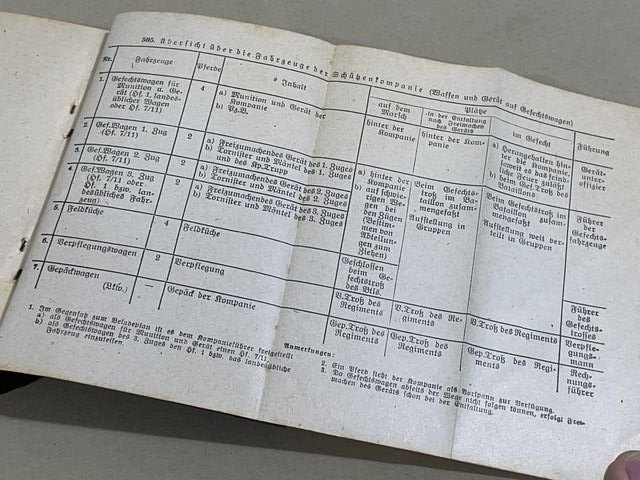 505. Übersicht über die Fahrzeuge der Schützenkompanie (Waffen und Gerät auf Gefechtswagen)
Nr.
Fahrzeuge
Pferde
Inhalt
Plätze
auf dem
Marsch
in der Entfaltung
nach Freimachen
des Geräts
im Gefecht
Führung
1.
Gefechtswagen für
Munition u. Ge-
rät (Hf. 1, landes-
üblicher Wagen
oder Hf. 7/11)
4
a) Munition und Gerät der
Kompanie
b) Bs.B.
hinter der
Kompanie
hinter der Kom-
panie
a) Herangehalten hin-
ter die Kompanie,
soweit es das feind-
liche Feuer zuläßt
b) beim Gef.Troß des
Bataillons
Gerät-
unter-
offizier
2.
Gef.Wagen 1. Zug
(Hf. 7/11)
2
a) Freizumachendes Gerät des 1. Zuges
b) Tornister und Mäntel des 1. Zuges
und des Kp.Trupp
3.
Gef.Wagen 2. Zug
(Hf. 7/11)
2
a) Freizumachendes Gerät des 2. Zuges
b) Tornister und Mäntel des 2. Zuges
4.
Gef.Wagen 3. Zug
(Hf. 7/11 oder
Hf. 1 bzw. lan-
desübliches Fahr-
zeug)
2
a) Freizumachendes Gerät des 3. Zuges
b) Tornister und Mäntel des 3. Zuges
a) hinter der
Kompanie
b) auf schwie-
rigen We-
gen bei
den Zügen
(Besetzung
von
Abteilun-
gen zum
Ziehen)
Beim Gefechts-
troß im Ba-
taillon zusam-
mengefaßt
Aufstellung in
Gruppen
Beim Gefechtstroß im
Bataillon zusam-
mengefaßt
Aufstellung weit ver-
teilt in Gruppen
Führer
der
Gefechts-
fahrzeuge
5.
Feldküche
4
Feldküche
Geschlossen
beim Ge-
fechtstroß
des Btls.
Führer
des
Gefechts-
trosses
6.
Verpflegungswagen
2
Verpflegung
V.Troß des
Regiments
V.Troß des Re-
giments
V.Troß des Regiments
Verpfle-
gungs-
mann
7.
Gepäckwagen
(Lkw.)
—
Gepäck der Kompanie
Gep.Troß des
Regiments
Gep.Troß des
Regiments
Gep.Troß des Regi-
ments
Rech-
nungs-
führer
Anmerkungen:
1. Im Gegensatz zum Beladeplan ist es dem Kompanieführer freigestellt
a) als Gefechtswagen für Munition und Gerät einen Hf. 7/11,
b) als Gefechtswagen des 3. Zuges den Hf. 1 bzw. das landesübliche
Fahrzeug einzuteilen.
2. Ein Pferd steht der Kompanie als Vorspann zur Verfügung.
3. Da Gefechtswagen abseits der Wege nicht folgen können, erfolgt Frei-
machen des Geräts schon bei der Entfaltung.